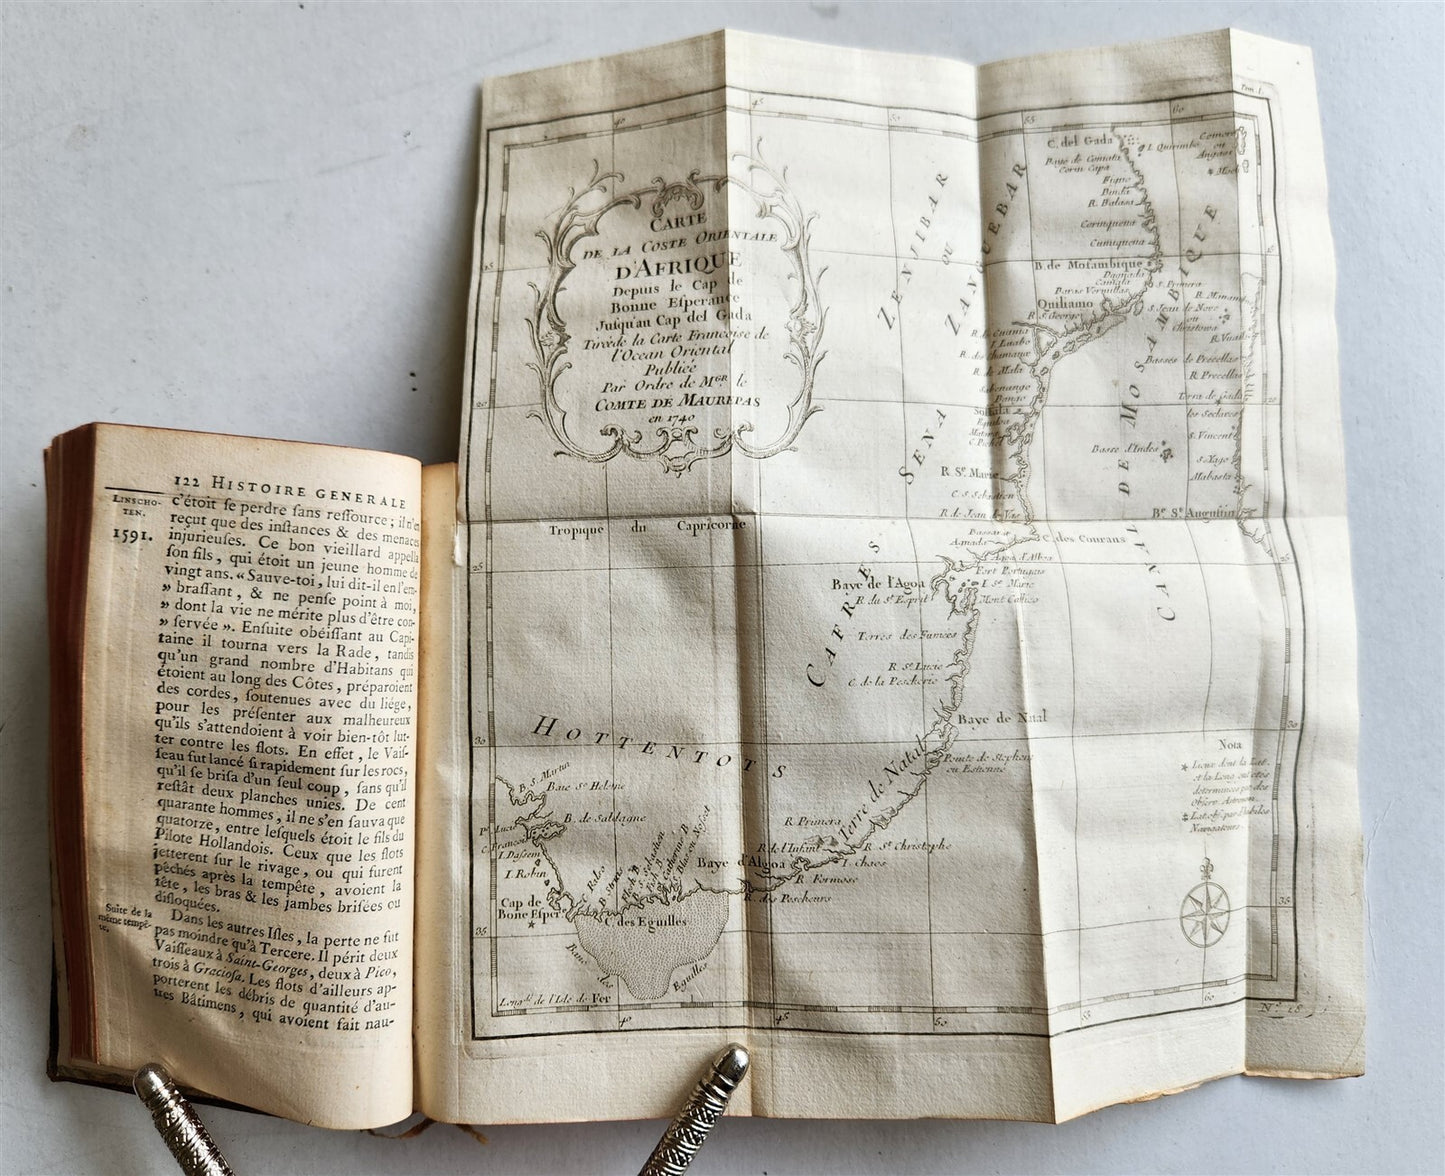 122 HISTOIRE GENERALE
LINSCHO-
TEN.
1591.
c'étoit ſe perdre ſans reſſource ; il n'en
reçut que des inſtances & des menaces
injurieuſes. Ce bon vieillard appella
ſon fils, qui étoit un jeune homme de
vingt ans. « Sauve-toi, lui dit-il en l'em-
» braſſant, & ne penſe point à moi,
» dont la vie ne mérite plus d'être con-
» ſervée ». Enſuite obéiſſant au Capi-
taine il tourna vers la Rade, tandis
qu'un grand nombre d'Habitans qui
étoient au long des Côtes, préparoient
des cordes, ſoutenues avec du liége,
pour les préſenter aux malheureux
qu'ils s'attendoient à voir bien-tôt lut-
ter contre les flots. En effet, le Vaiſ-
ſeau fut lancé ſi rapidement ſur les rocs,
qu'il ſe briſa d'un ſeul coup, ſans qu'il
reſtât deux planches unies. De cent
quarante hommes, il ne s'en ſauva que
quatorze, entre leſquels étoit le fils du
Pilote Hollandois. Ceux que les flots
jetterent ſur le rivage, ou qui furent
pêchés après la tempête, avoient la
tête, les bras & les jambes briſées ou
diſloquées.
Suite de la
même tempê-
te.
Dans les autres Iſles, la perte ne fut
pas moindre qu'à Tercere. Il périt deux
Vaiſſeaux à Saint-Georges, deux à Pico,
trois à Gracioſa. Les flots d'ailleurs ap-
porterent les débris de quantité d'au-
tres Bâtimens, qui avoient fait nau-
Tom I.
40 45 50 55 60
CARTE
DE LA COSTE ORIENTALE
D'AFRIQUE
Depuis le Cap de
Bonne Eſperance
Juſqu'au Cap del Gada
Tirée de la Carte Françoise de
l'Ocean Oriental
Publiée
Par Ordre de MGR. le
COMTE DE MAUREPAS
en 1740
ZENJIBAR
OU
ZANGUEBAR
C. del Gada
I. Quirimbe
Comore
ou
Angasi
Baye de Comata
Fugno
R. Balasa
Corinquena
Cumuquena
B. de Mosambique
Quiliamo
R. S. Georges
S. Jean de Nove
ou
Christova
R. de Cuama
I. Luabo
R. de Mala
Basses de Precellas
R. Precellas
Terra de Gada
SENA
Sofala
CANAL DE MOSAMBIQUE
Basse d'Indes
S. Vincent
S. Yago
R. Ste. Marie
C. S. Sebastien
Be. St. Augustin
Tropique du Capricorne
C. des Courans
Fort Portugais
Baye de l'Agoa
I. Ste. Marie
R. du St. Esprit
CAFRES
Terres des Fumées
R. Ste. Lucie
C. de la Pescherie
Baye de Nual
HOTTENTOTS
Terre de Natal
Pointe de Stephens
ou Estienne
B. S. Martin
Baie Ste Helene
B. de Saldagne
I. Dassem
I. Robin
Cap de
Bone Esper.
C. des Eguilles
Banc des Eguilles
R. Primera
R. de l'Infant
R. St. Christophe
Baye d'Algoa
I. Chaos
R. Formose
R. des Pescheurs
Nota
Longde. de l'Isle de Fer
40 45 50 55 60
No. 18